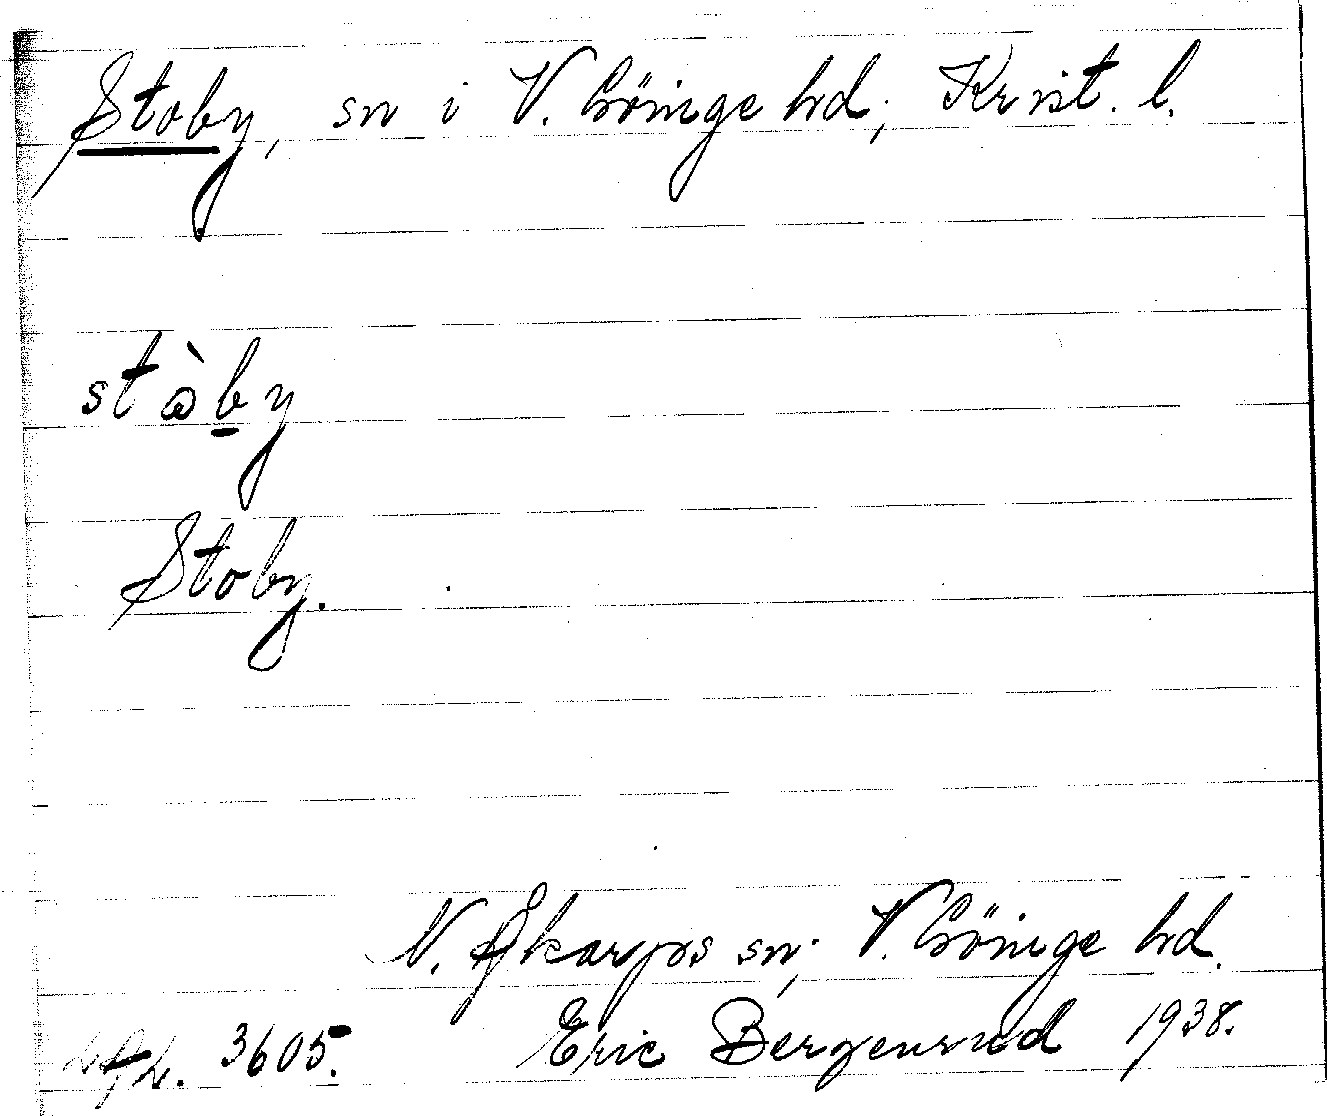 Stoby, sn i V. Göinge hd; Krist. l.
stòby
Stoby.
N. Åkarps sn; V. Göinge hd.
3605. Eric Bergenrud 1938.